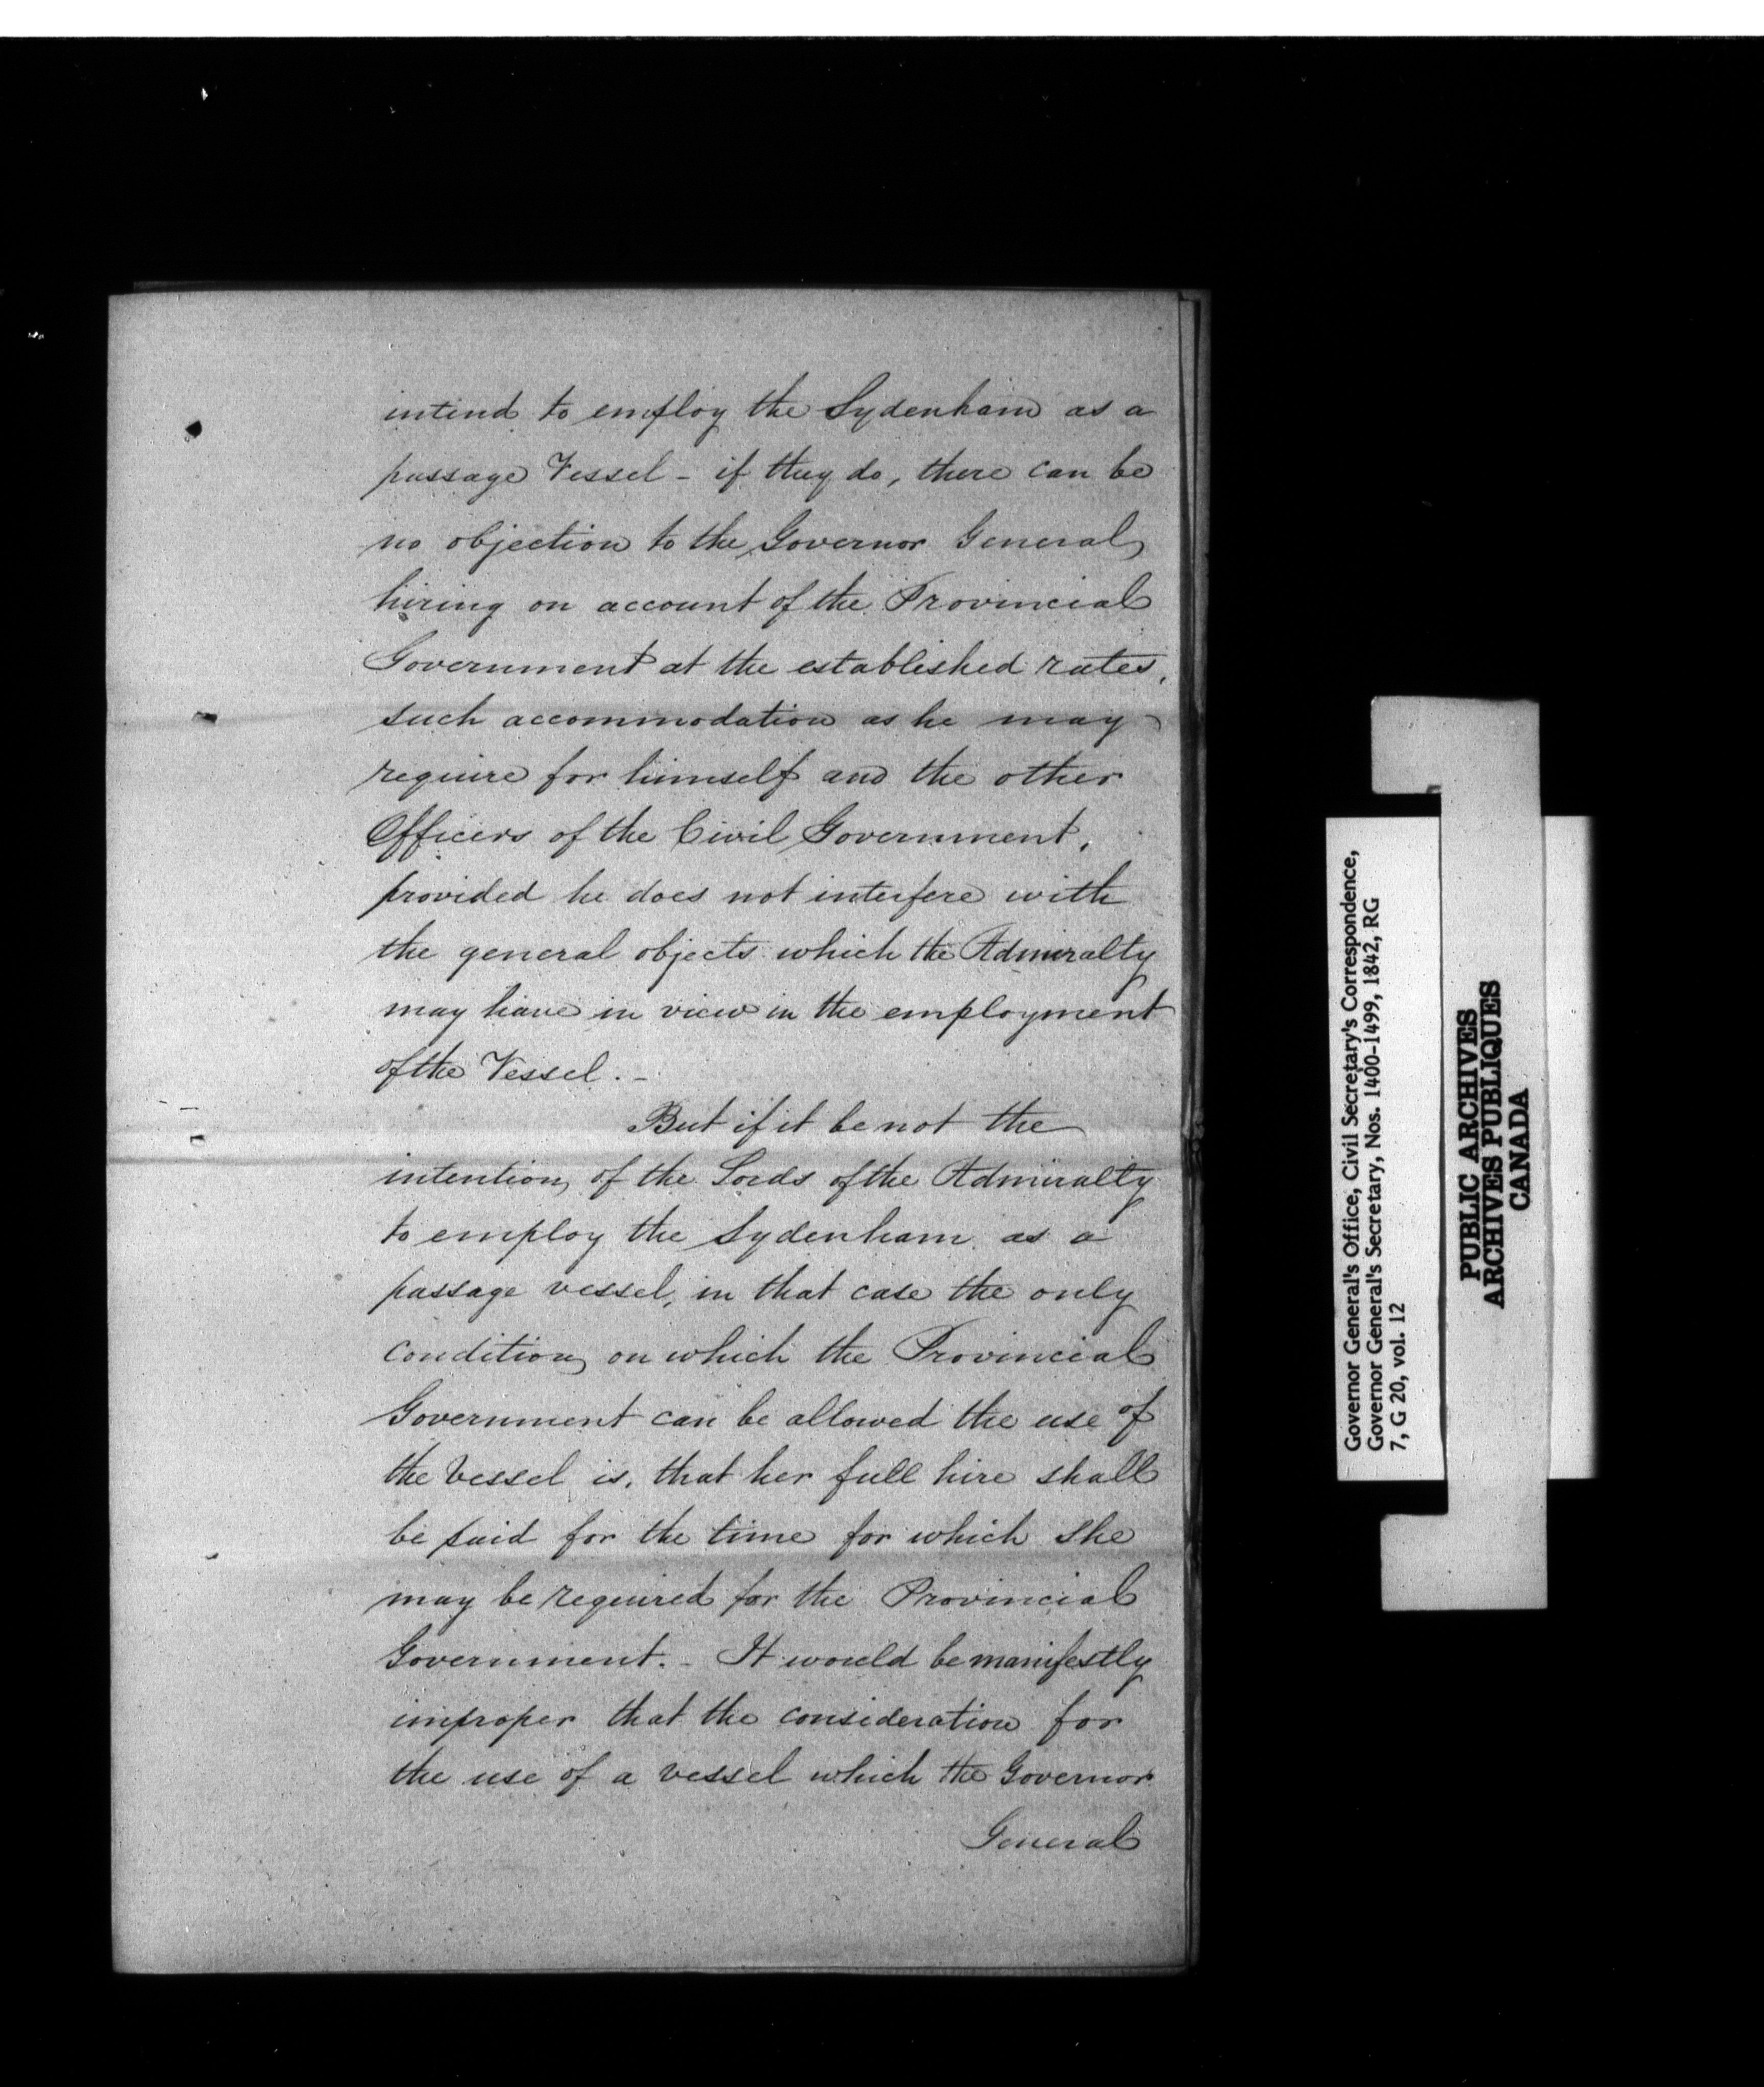 intend to employ the Sydenham as a
passage Vessel - if they do, there can be
no objection to the Governor General
hiring on account of the Provincial
Government at the established rates,
such accommodation as he may
require for himself and the other
Officers of the Civil Government,
provided he does not interfere with
the general objects which the Admiralty
may have in view in the employment
of the Vessel. -
But if it be not the
intention of the Lords of the Admiralty
to employ the Sydenham as a
passage vessel, in that case the only
condition on which the Provincial
Government can be allowed the use of
the Vessel is, that her full hire shall
be paid for the time for which she
may be required for the Provincial
Government. - It would be manifestly
improper that the consideration for
the use of a vessel which the Governor
General
Governor General's Office, Civil Secretary's Correspondence,
Governor General's Secretary, Nos. 1400-1499, 1842, RG
7, G 20, vol. 12
PUBLIC ARCHIVES
ARCHIVES PUBLIQUES
CANADA